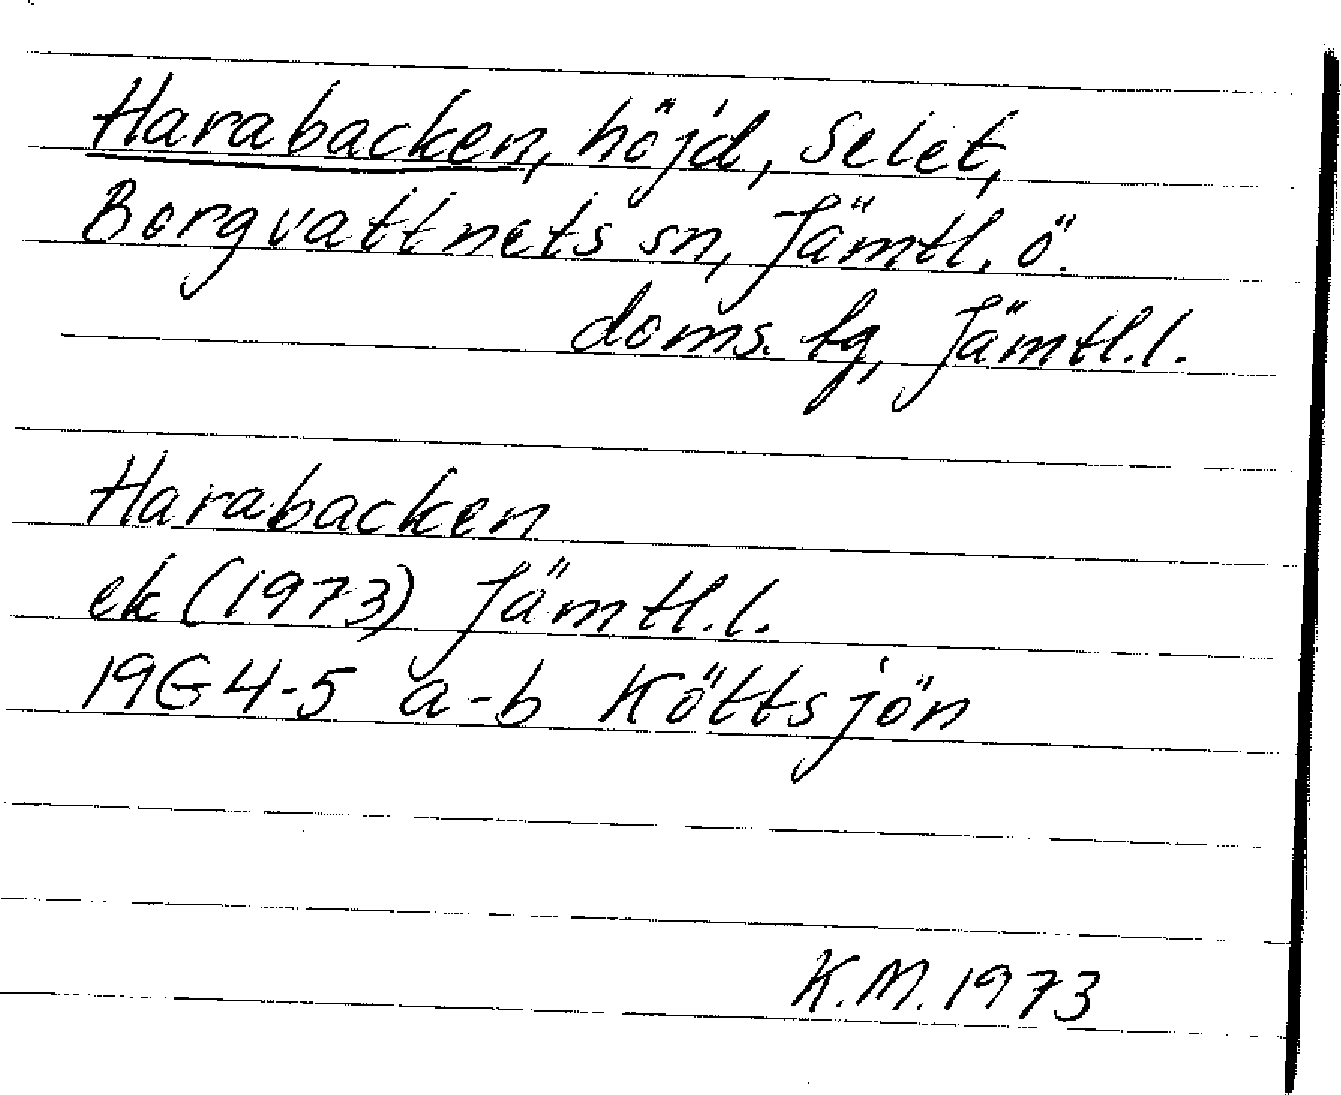 Harabacken, höjd, Selet,
Borgvattnets sn, Jämtl. ö.
doms. fg, Jämtl.l.
Harabacken
ek (1973) Jämtl.l.
19G4-5 a-b Köttsjön
K.M. 1973